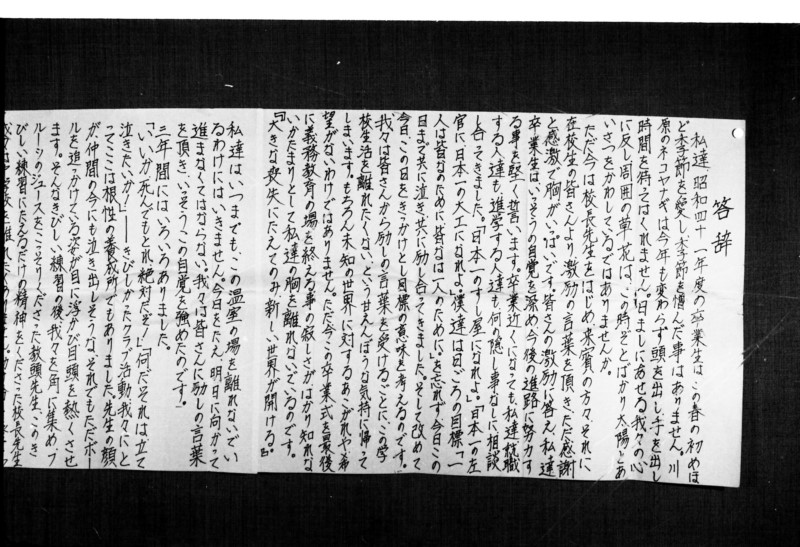 答辞
私達 昭和四十一年度の卒業生は、この春の初めほ
ど季節を愛し、季節を憎んだ事はありません。川
原のネコヤナギは今年も変わらず頭を出し手を出し
時間を待ってはくれません。日ましにあせる我々の心
に反し周囲の草、花は、この時ぞとばかり太陽とあ
いさつをかわしているではありませんか。
ただ今は校長先生をはじめ、来賓の方々、それに
在校生の皆さんより、激励の言葉を頂き、ただ感謝
と感激で胸がいっぱいです。皆さんの激励に答え私達
卒業生はいっそうの自覚を深め、今後の進路に努力す
る事を堅く誓います。卒業近くになっても私達就職
する人達も進学する人達も何の隠し事なしに相談
し合ってきました。「日本一のすし屋になれよ。」「日本一の左
官に、日本一の大工になれよ。」僕達は日ごろの目標「一
人は皆なのために皆なは一人のために。」を忘れず今日この
日まで共に泣き共に励し合ってきました。そして改めて
今日、この日をきっかけとし目標の意味を考えるのです。
我々は皆さんから励しの言葉を受けるごとに、この学
校生活を離れたくない、というせんぱくな気持に帰って
しまいます。もちろん未知の世界に対するあこがれや、希
望がないわけではありません。ただ今この卒業式を最後
に義務教育の場を終える事の寂しさがはかり知れな
いかたまりとして私達の胸を離れないでいるのです。
『大きな喪失にたえてのみ新しい世界が開ける。』
私達はいつまでも、この温室の場を離れないでい
るわけにはいきません。今日をたえ、明日に向かって
進まなくてはならない。我々は皆さんに励しの言葉
を頂き、いっそうこの自覚を強めたのです。
三年間にはいろいろありました。
「いいか、死んでもとれ、絶対だぞ！」「何だそれは、立て
泣きたいか！」――きびしかったクラブ活動、我々にと
ってここは根性の養成所でもありました。先生の顔
が仲間の今にも泣き出しそうな、それでもただボー
ルを追っかけている姿が目に浮かび目頭を熱くさせ
ます。そんなきびしい練習の後、我々を角に集めフ
ルーツのジュースをこっそりくださった教頭先生、このき
びしい練習にたえるだけの精神をくださった校長先生